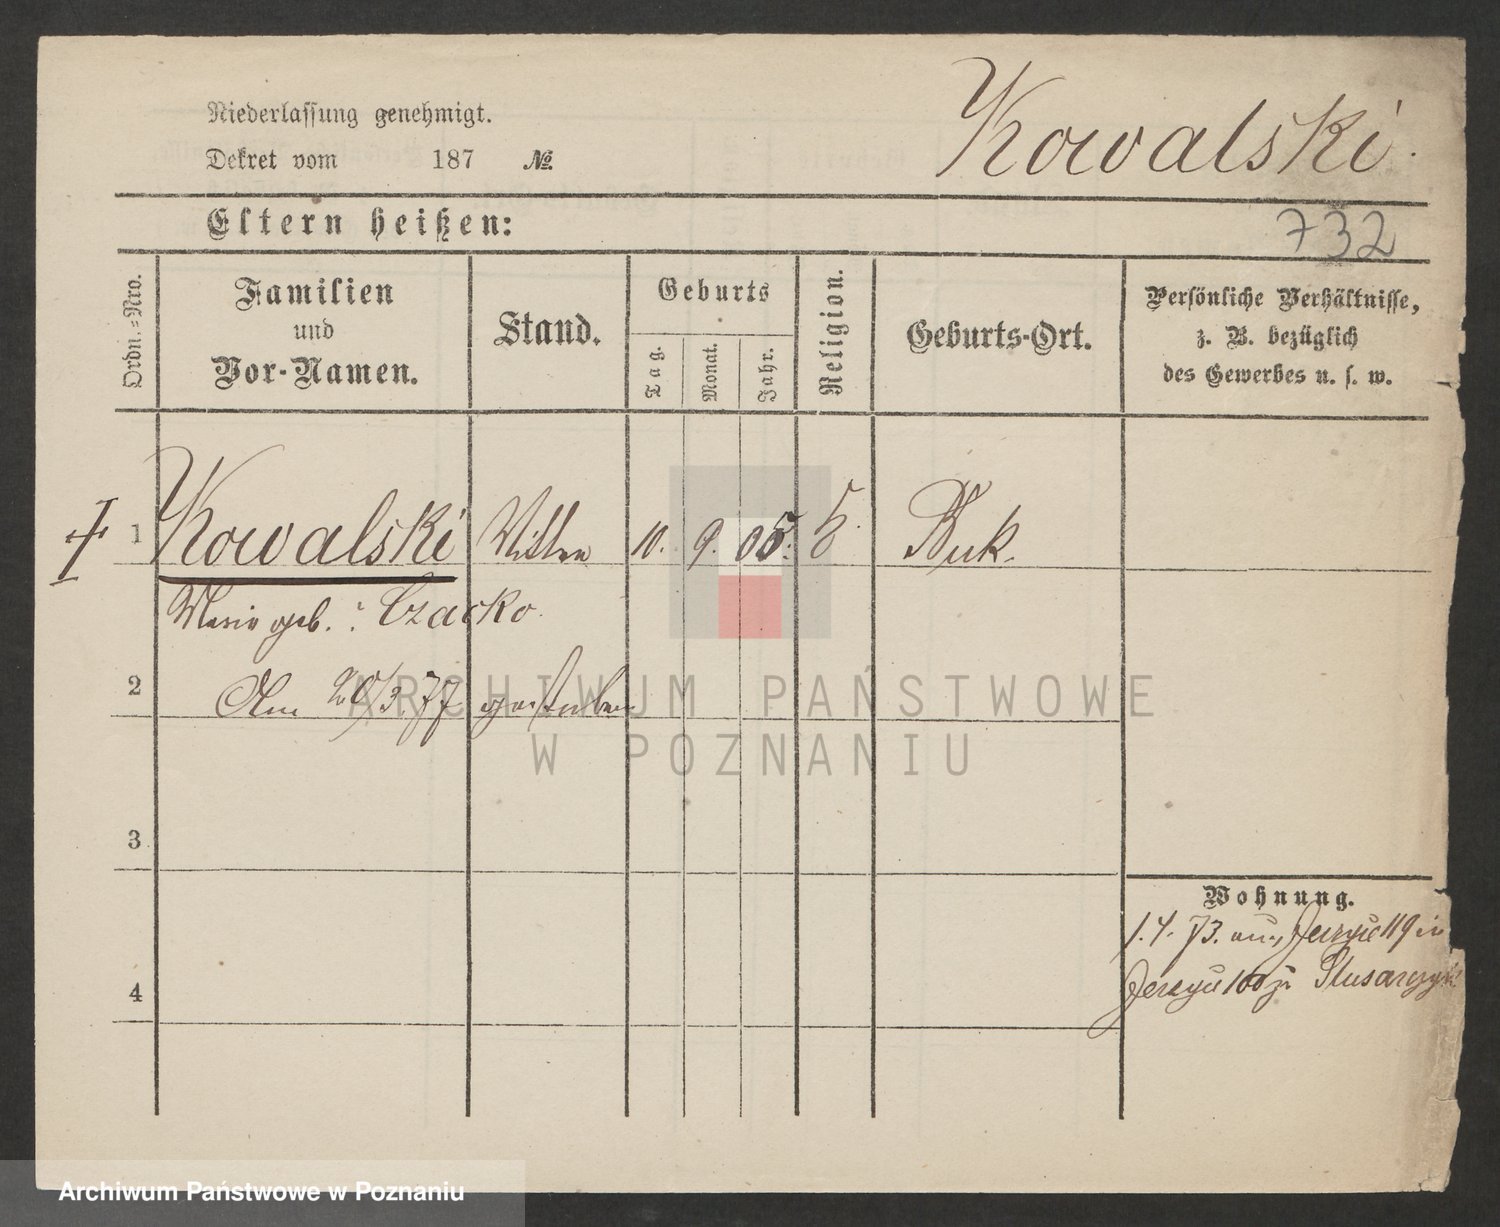 Kowalski.
Niederlassung genehmigt.
Dekret vom 187 №.
Eltern heißen:
732
Ordn.=Nro.
Familien
und
Vor-Namen.
Stand.
Geburts
Tag.
Monat.
Jahr.
Religion.
Geburts-Ort.
Persönliche Verhältnisse,
z. B. bezüglich
des Gewerbes u. s. w.
1 Kowalski 10. 9. 05. Buk.
Marie geb.: Czacko
2 Am 20/3.77 gestorben
3
4
Wohnung.
1.4.73. aus Jerzyce 119 in
Jerzyce 100 zu
ARCHIWUM PAŃSTWOWE
W POZNANIU
Archiwum Państwowe w Poznaniu